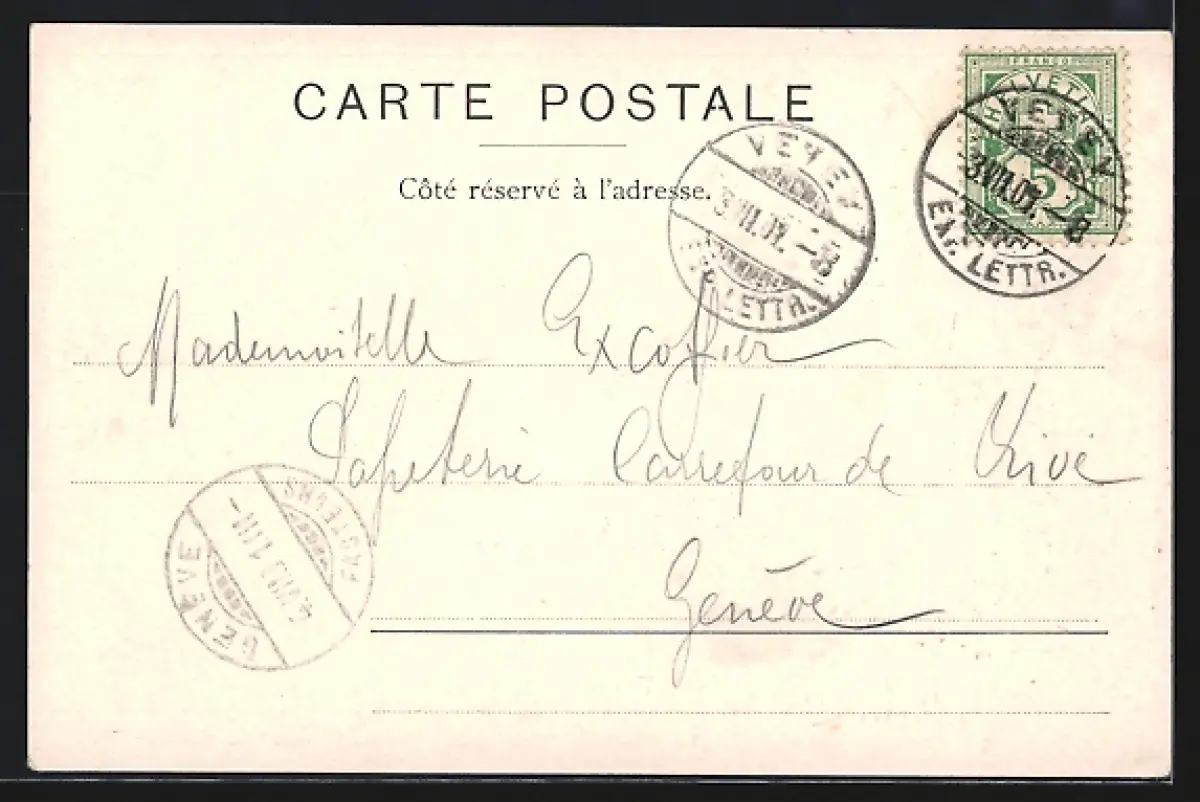 CARTE POSTALE
Côté réservé à l'adresse.
FRANCO
HELVETIA
5
VEVEY
3.VII.01.–8
EXP. LETTR.
VEVEY
3.VII.01.–8
EXP. LETTR.
Mademoiselle Excoffier
Papeterie Carrefour de Rive
Genève
GENÈVE
4.VII.01
FACTEURS